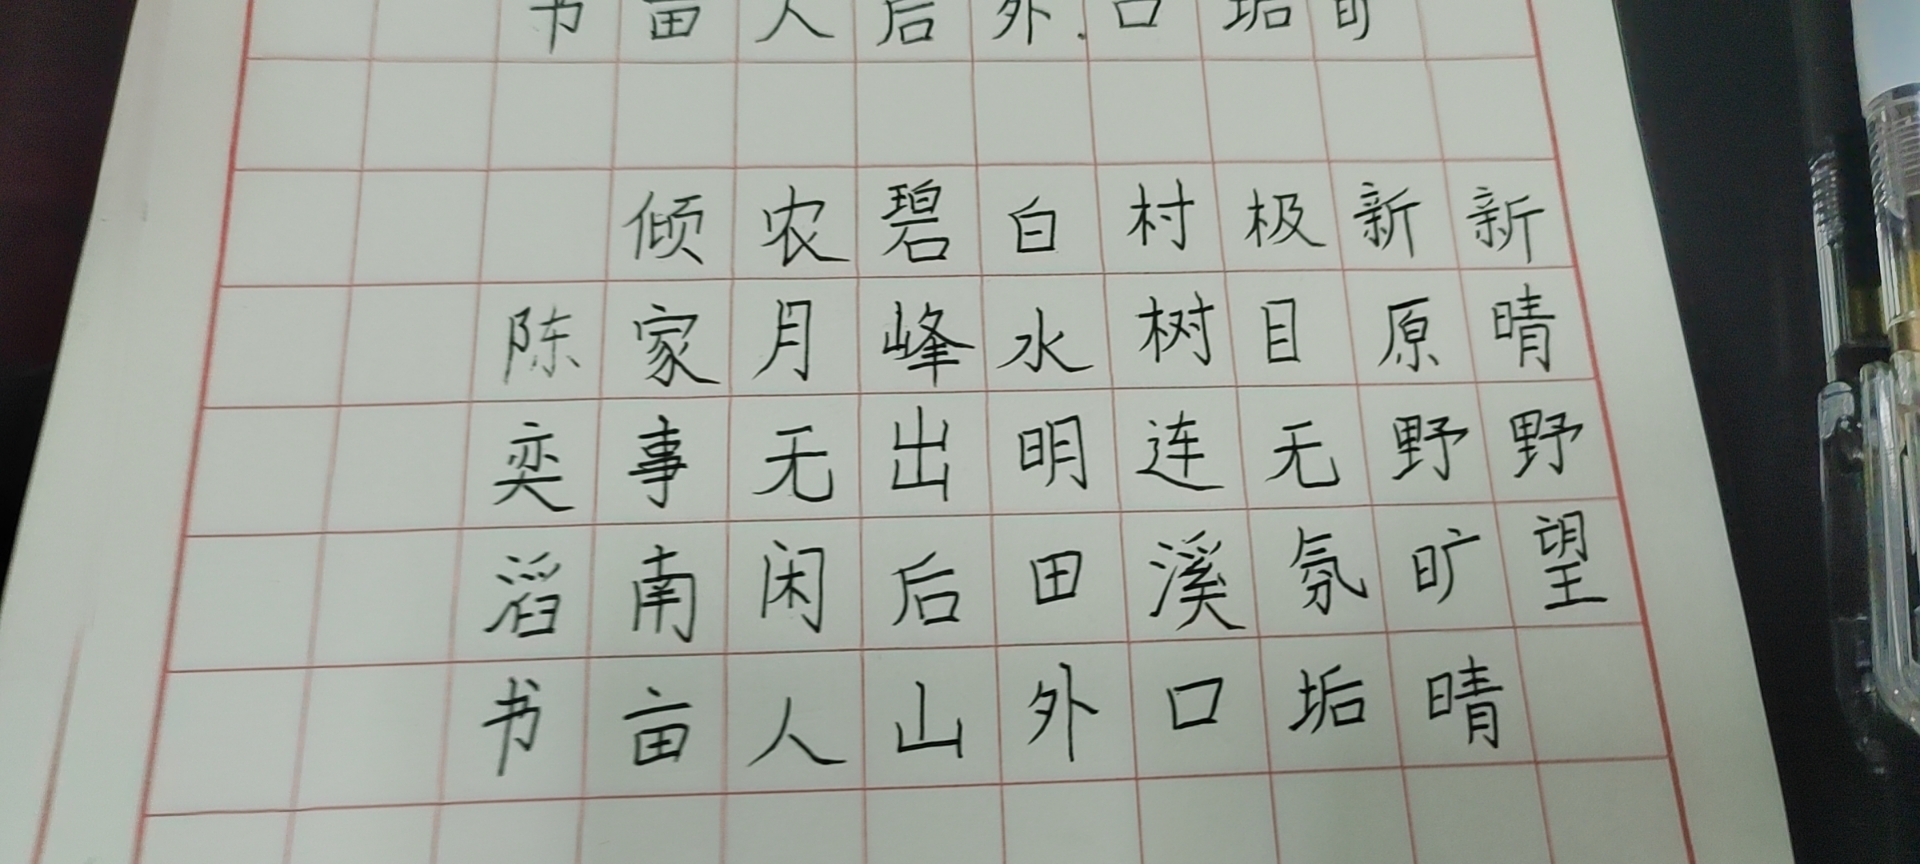 垢
口
外
后
人
亩
书
新晴野望
新原野旷晴
极目无氛垢
村树连溪口
白水明田外
碧峰出后山
农月无闲人
倾家事南亩
陈奕滔书